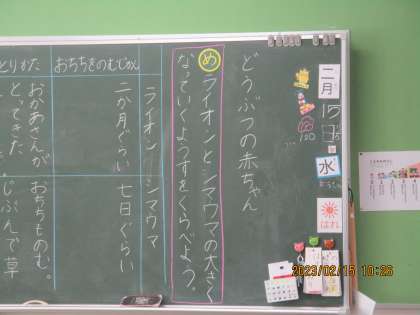 二月
15
日
水
はれ
どうぶつの赤ちゃん
め
ライオンとシマウマの大きく
なっていくようすをくらべよう。
ライオン シマウマ
おちちをのむじかん
二か月ぐらい 七日ぐらい
とりかた
おかあさんが おちちものむ。
とってきた じぶんで草
2023/02/15 10:26